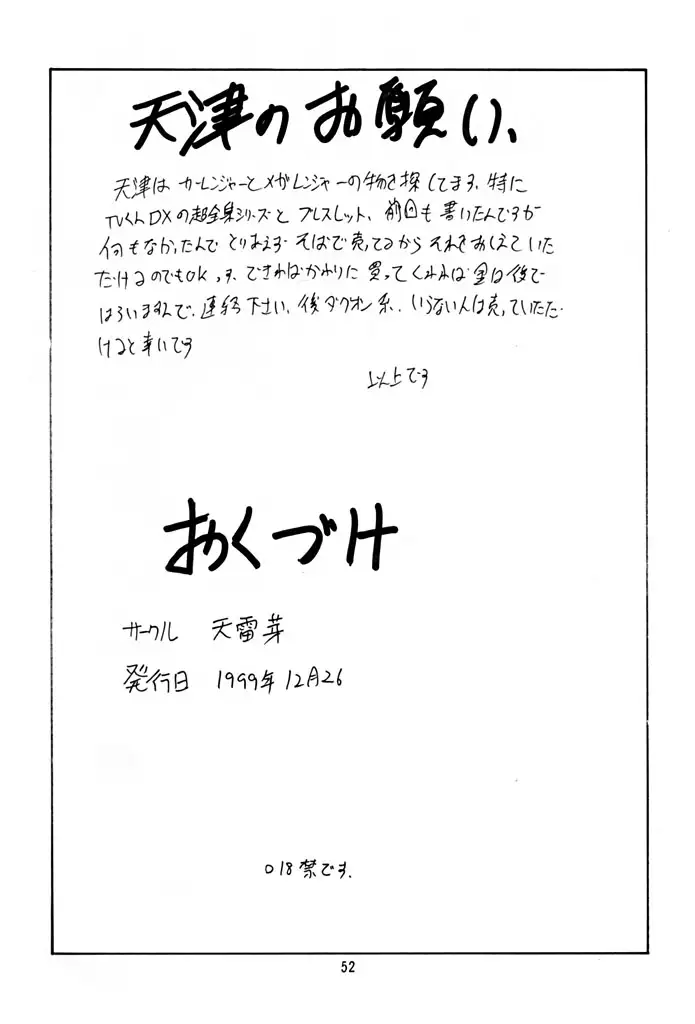 天津のお願い、
天津は カーレンジャーとメガレンジャーの物を探してます、特に
TVくんDXの超全集シリーズと ブレスレット、前回も書いたんですが
何もなかったんで とりあえず そばで売ってるから それをおしえていた
だけるのでもOKっす、できればかわりに 買ってくれれば 金は後で
はらいますんで、連絡下さい、後ダグオン系、いらない人は売っていただ
けると幸いです
以上です
おくづけ
サークル 天雷芽
発行日 1999年12月26
○18禁です.
52